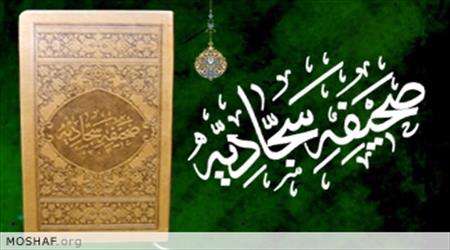 صَحیفِه سَجّادِیّه
صحیفه سجادیه
MOSHAF.org